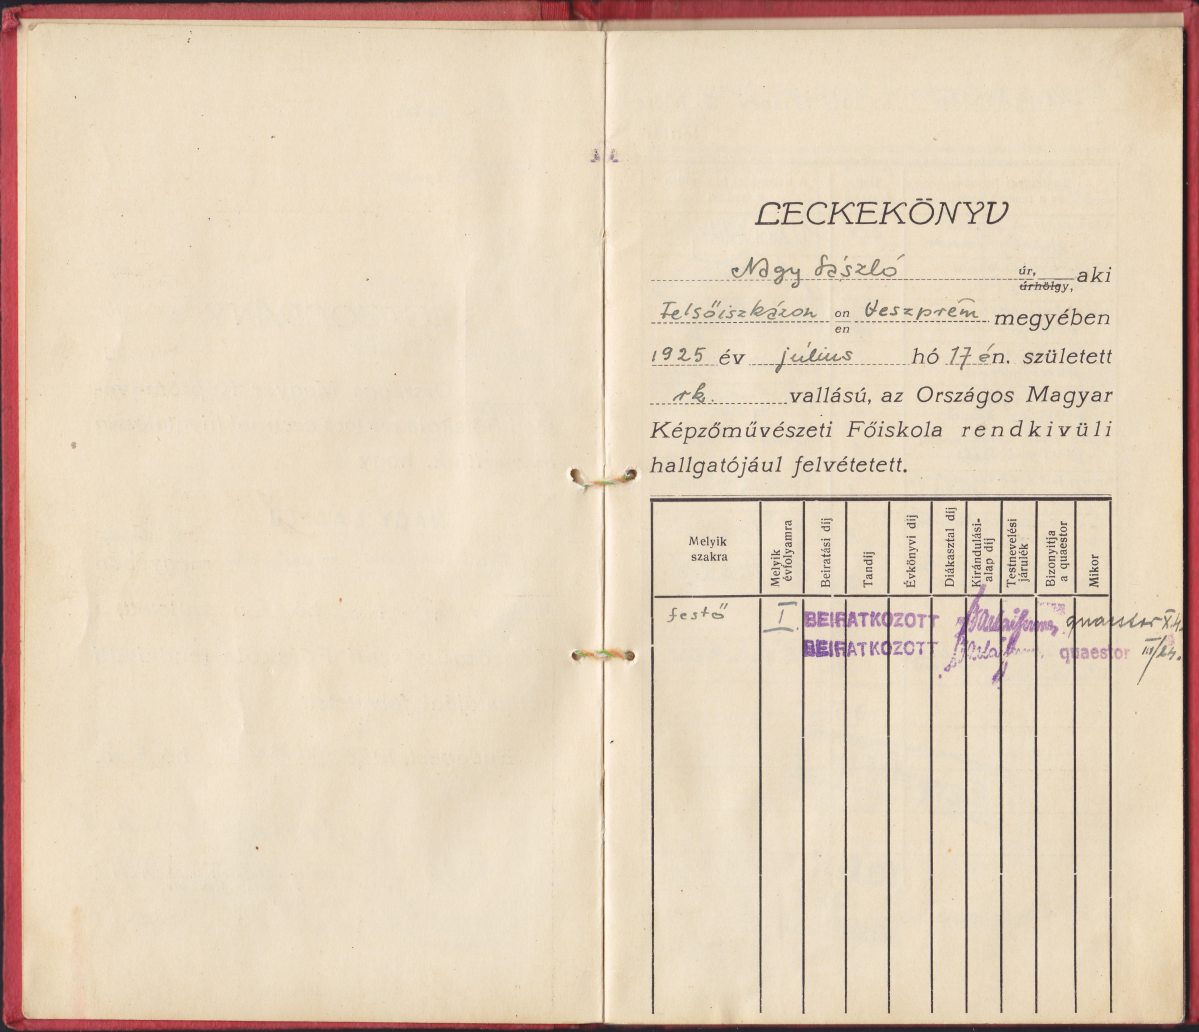 LECKEKÖNYV
Nagy László úr, úrhölgy, aki
Felsőiszkázon on en Veszprém megyében
1925 év július hó 17 én. született
rk. vallású, az Országos Magyar
Képzőművészeti Főiskola rendkivüli
hallgatójául felvétetett.
Melyik szakra
Melyik évfolyamra
Beiratási díj
Tandíj
Évkönyvi díj
Diákasztal díj
Kirándulási-alap díj
Testnevelési járulék
Bizonyitja a quaestor
Mikor
festő I. BEIRATKOZOTT quaestor
BEIRATKOZOTT quaestor